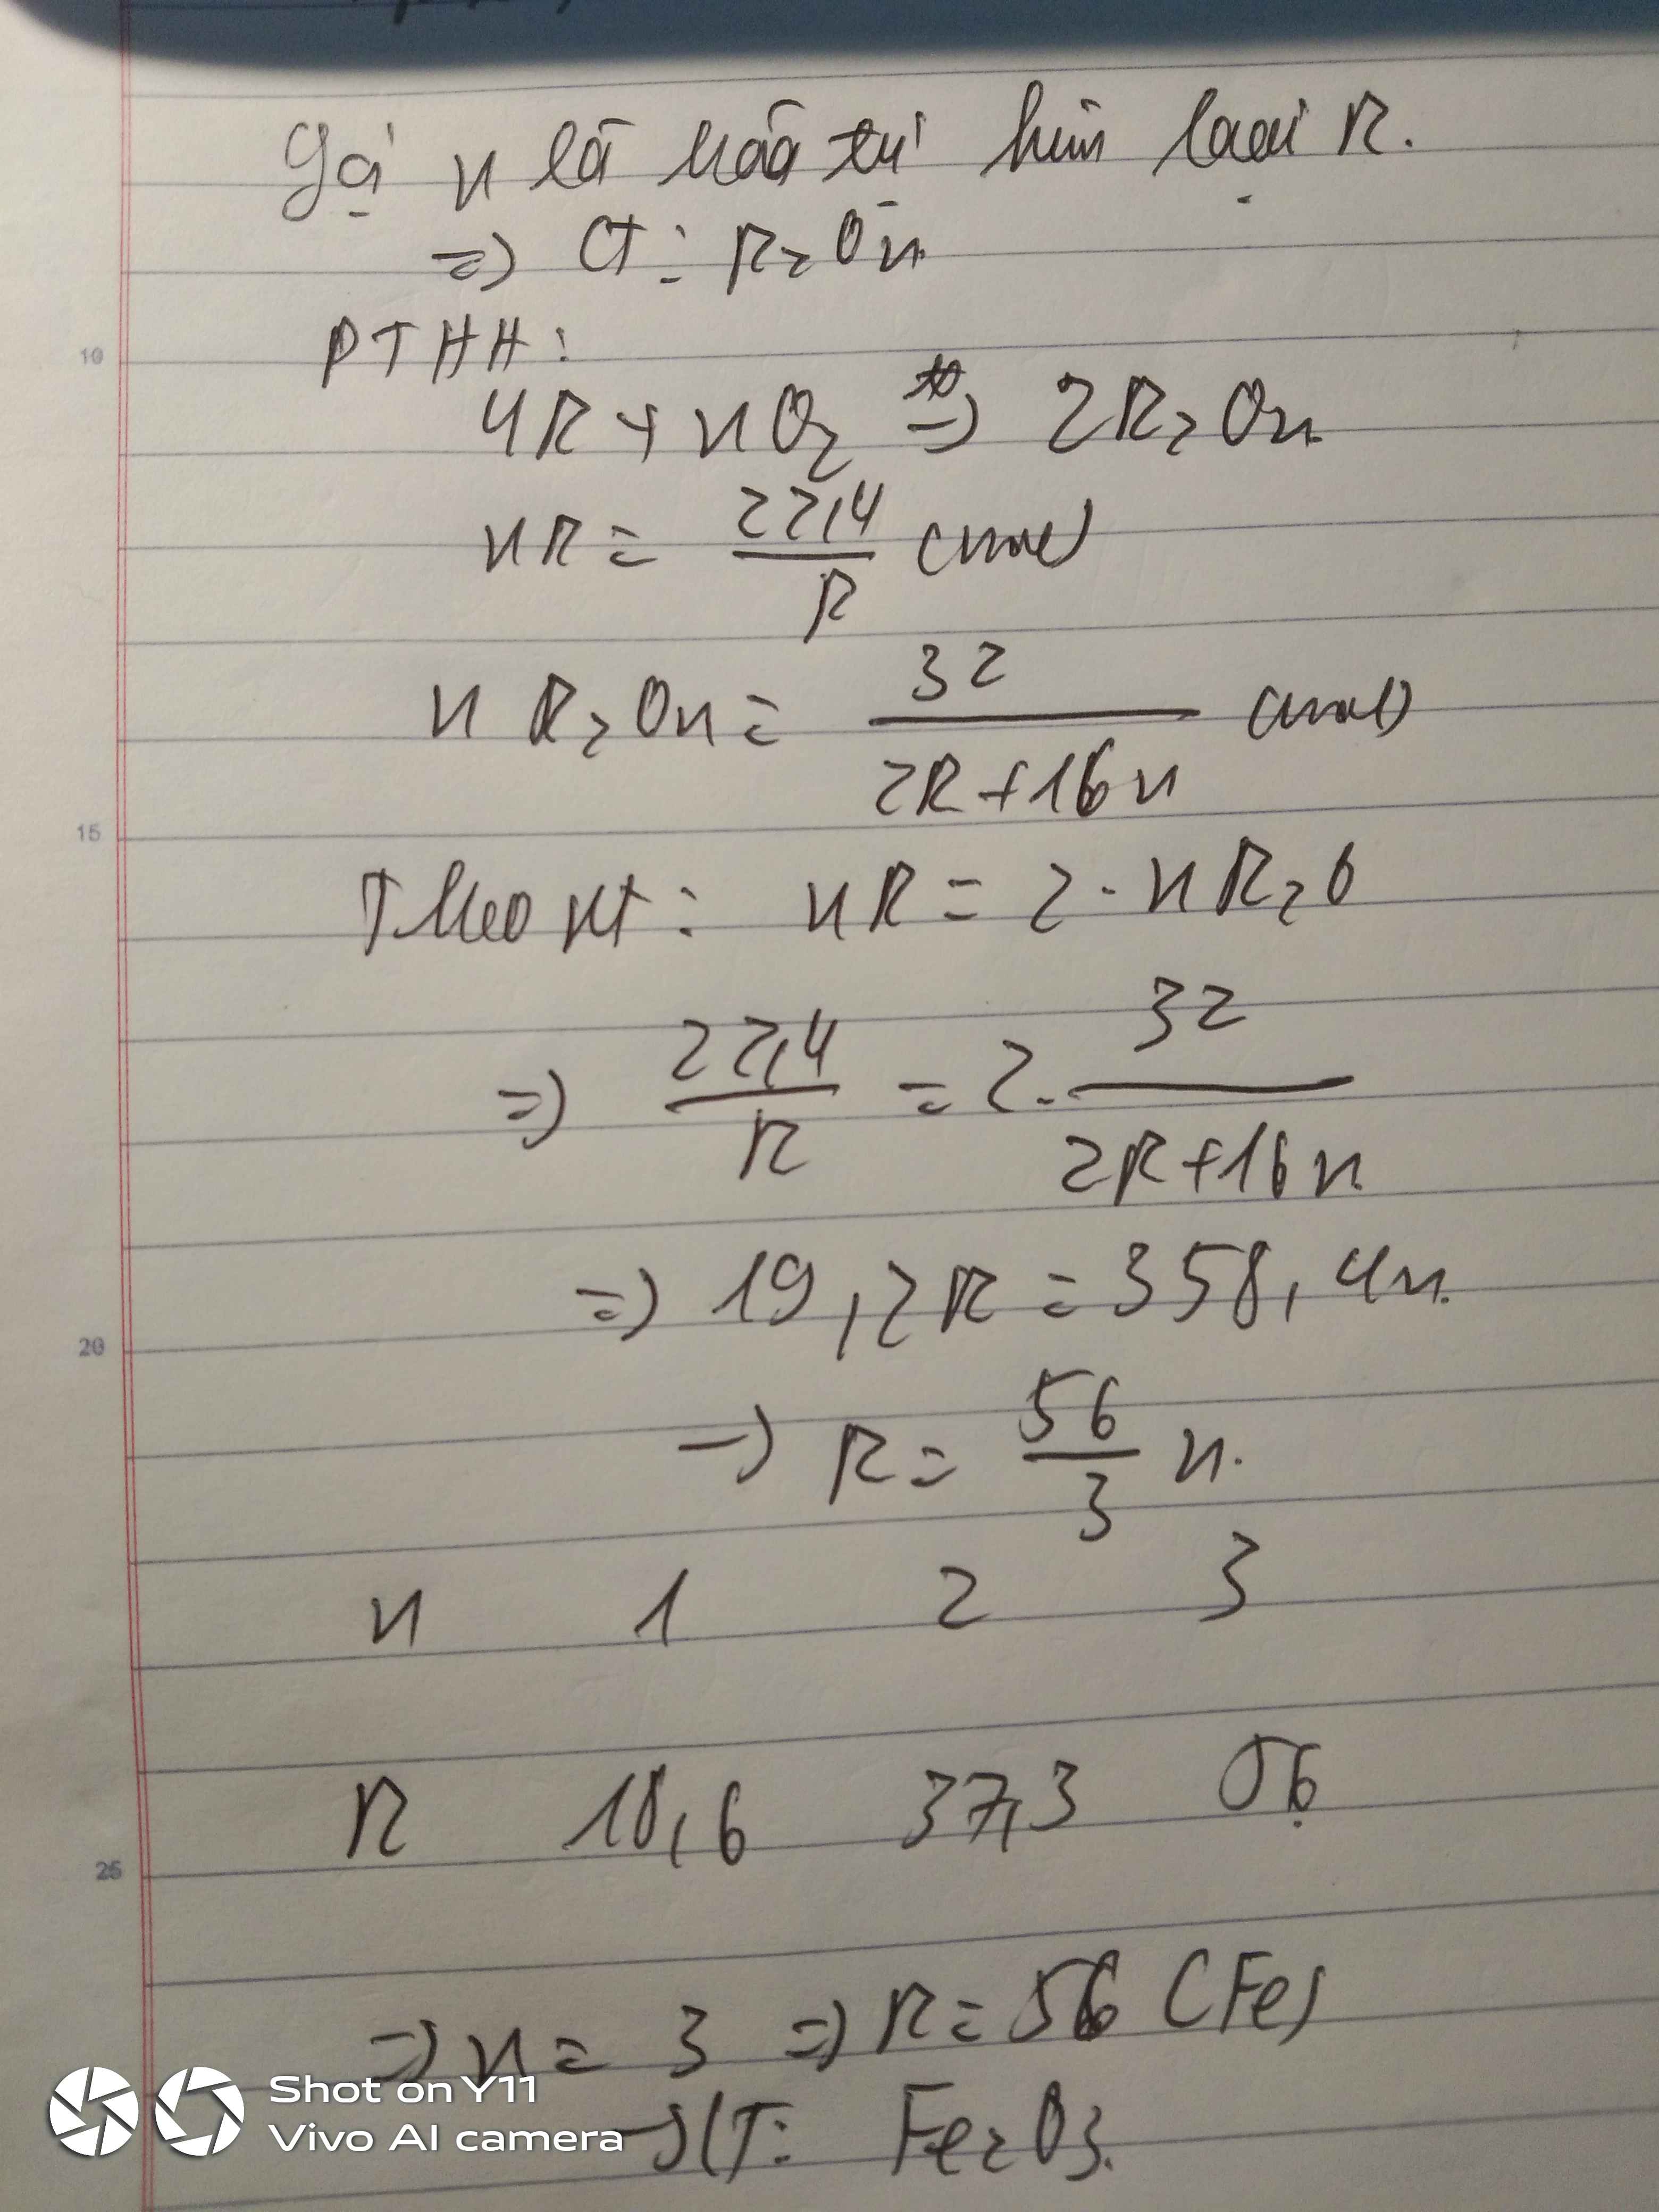 Gọi n là hóa trị kim loại R.
=) CT: R2On
10
PTHH:
4R + nO2 =) 2R2On
nR = 22,4/R (mol)
n R2On = 32/(2R+16n) (mol)
15
Theo pt: nR = 2. nR2O
=) 22,4/R = 2. 32/(2R+16n)
=) 19,2R = 358,4n.
20
=) R = 56/3 n.
n 1 2 3
R 18,6 37,3 56
25
=) n = 3 =) R = 56 (Fe)
Shot on Y11
Vivo AI camera
CT: Fe2O3.